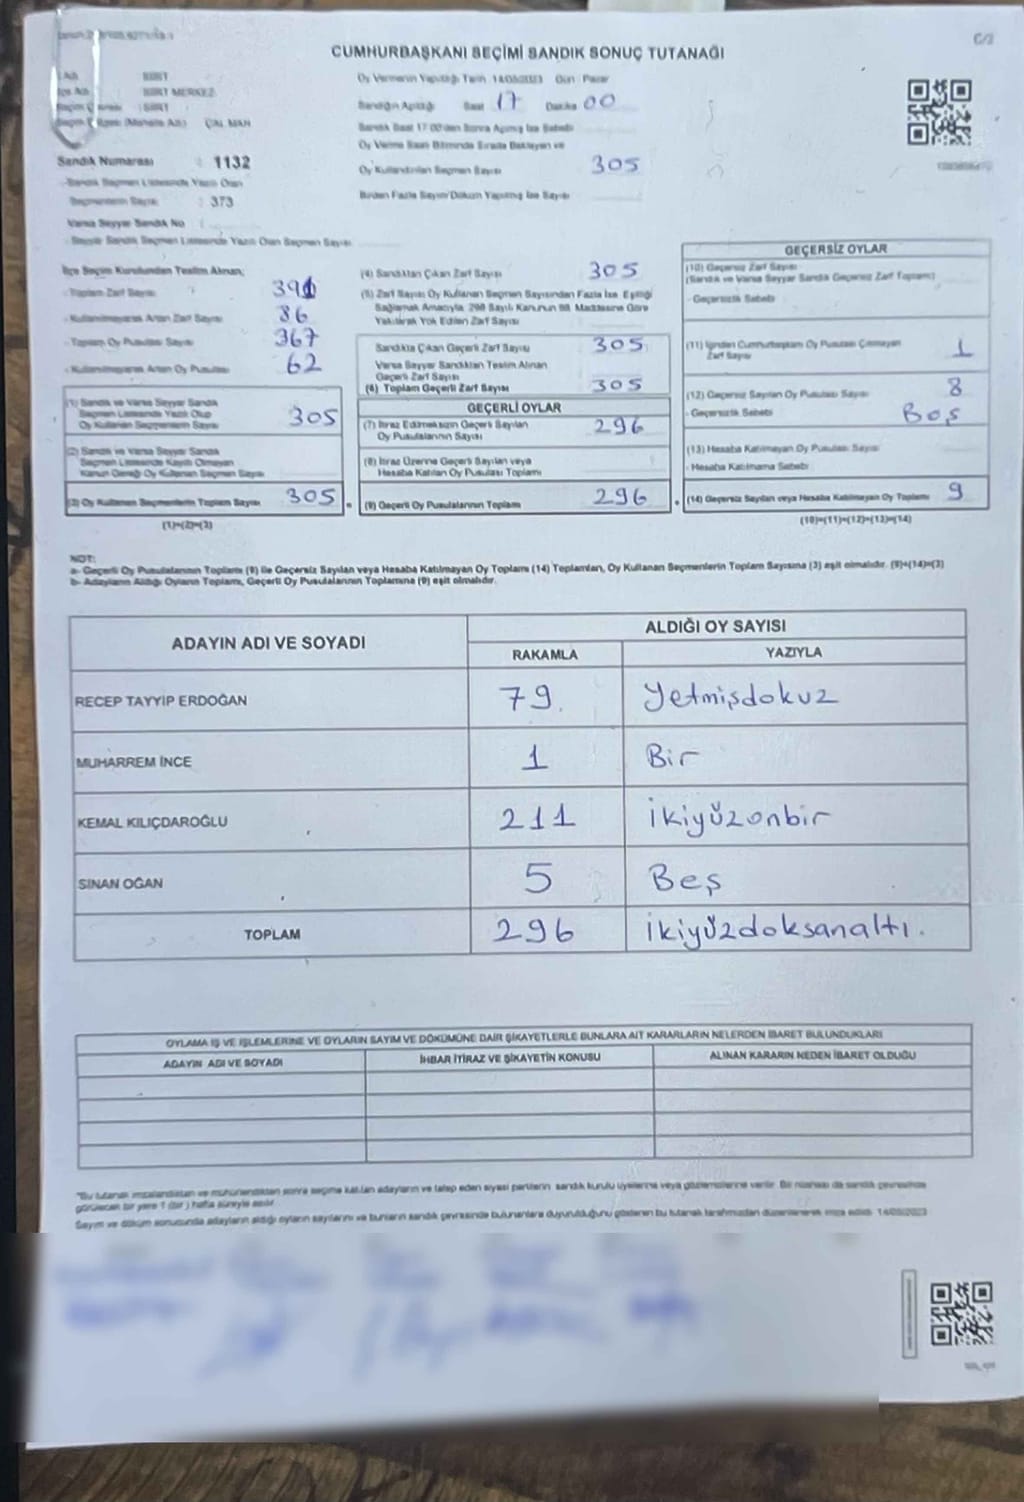 C/2
CUMHURBAŞKANI SEÇİMİ SANDIK SONUÇ TUTANAĞI
SİİRT
SİİRT MERKEZ
SİİRT
ÇAL MAH
Oy Vermenin Yapıldığı Tarih 14/05/2023 Gün Pazar
Sandığın Açıldığı Saat 17 Dakika 00
Sandık Saat 17:00'den Sonra Açılmış İse Sebebi
Oy Verme Saati Bitiminde Sırada Bekleyen ve
Oy Kullandırılan Seçmen Sayısı 305
Birden Fazla Sayım/Döküm Yapılmış İse Sayısı
Sandık Numarası : 1132
Sandık Seçmen Listesinde Yazılı Olan
Seçmenlerin Sayısı : 373
Varsa Seyyar Sandık No :
- Seyyar Sandık Seçmen Listesinde Yazılı Olan Seçmen Sayısı
İlçe Seçim Kurulundan Teslim Alınan;
- Toplam Zarf Sayısı 391
- Kullanılmayarak Artan Zarf Sayısı 86
- Toplam Oy Pusulası Sayısı 367
- Kullanılmayarak Artan Oy Pusulası 62
(1) Sandık ve Varsa Seyyar Sandık
Seçmen Listesinde Yazılı Olup
Oy Kullanan Seçmenlerin Sayısı 305
(2) Sandık ve Varsa Seyyar Sandık
Seçmen Listesinde Kayıtlı Olmayan
Kanun Gereği Oy Kullanan Seçmen Sayısı
(3) Oy Kullanan Seçmenlerin Toplam Sayısı 305
(1)+(2)=(3)
(4) Sandıktan Çıkan Zarf Sayısı 305
(5) Zarf Sayısı Oy Kullanan Seçmen Sayısından Fazla İse, Eşitliği
Sağlamak Amacıyla, 298 Sayılı Kanunun 98. Maddesine Göre
Yakılarak Yok Edilen Zarf Sayısı
Sandıkta Çıkan Geçerli Zarf Sayısı 305
Varsa Seyyar Sandıktan Teslim Alınan
Geçerli Zarf Sayısı
(6) Toplam Geçerli Zarf Sayısı 305
GEÇERLİ OYLAR
(7) İtiraz Edilmeksizin Geçerli Sayılan
Oy Pusulalarının Sayısı 296
(8) İtiraz Üzerine Geçerli Sayılan veya
Hesaba Katılan Oy Pusulası Toplamı
(9) Geçerli Oy Pusulalarının Toplamı 296
GEÇERSİZ OYLAR
(10) Geçersiz Zarf Sayısı
(Sandık ve Varsa Seyyar Sandık Geçersiz Zarf Toplamı)
- Geçersizlik Sebebi
(11) İçinden Cumhurbaşkanı Oy Pusulası Çıkmayan
Zarf Sayısı 1
(12) Geçersiz Sayılan Oy Pusulası Sayısı 8
- Geçersizlik Sebebi Boş
(13) Hesaba Katılmayan Oy Pusulası Sayısı
- Hesaba Katılmama Sebebi
(14) Geçersiz Sayılan veya Hesaba Katılmayan Oy Toplamı 9
(10)+(11)+(12)+(13)=(14)
NOT:
a- Geçerli Oy Pusulalarının Toplamı (9) ile Geçersiz Sayılan veya Hesaba Katılmayan Oy Toplamı (14) Toplamları, Oy Kullanan Seçmenlerin Toplam Sayısına (3) eşit olmalıdır. (9)+(14)=(3)
b- Adayların Aldığı Oyların Toplamı, Geçerli Oy Pusulalarının Toplamına (9) eşit olmalıdır.
ADAYIN ADI VE SOYADI
ALDIĞI OY SAYISI
RAKAMLA YAZIYLA
RECEP TAYYİP ERDOĞAN 79. Yetmişdokuz
MUHARREM İNCE 1 Bir
KEMAL KILIÇDAROĞLU 211 İkiyüzonbir
SİNAN OĞAN 5 Beş
TOPLAM 296 İkiyüzdoksanaltı.
OYLAMA İŞ VE İŞLEMLERİNE VE OYLARIN SAYIM VE DÖKÜMÜNE DAİR ŞİKAYETLERLE BUNLARA AİT KARARLARIN NELERDEN İBARET BULUNDUKLARI
ADAYIN ADI VE SOYADI İHBAR İTİRAZ VE ŞİKAYETİN KONUSU ALINAN KARARIN NEDEN İBARET OLDUĞU
*Bu tutanak imzalandıktan ve mühürlendikten sonra seçime katılan adayların ve talep eden siyasi partilerin sandık kurulu üyelerine veya gözlemcilerine verilir. Bir nüshası da sandık çevresinde
görülecek bir yere 1 (bir) hafta süreyle asılır.
Sayım ve döküm sonucunda adayların aldığı oyların sayılarını ve bunların sandık çevresinde bulunanlara duyurulduğunu gösteren bu tutanak tarafımızdan düzenlenerek imza edildi. 14/05/2023